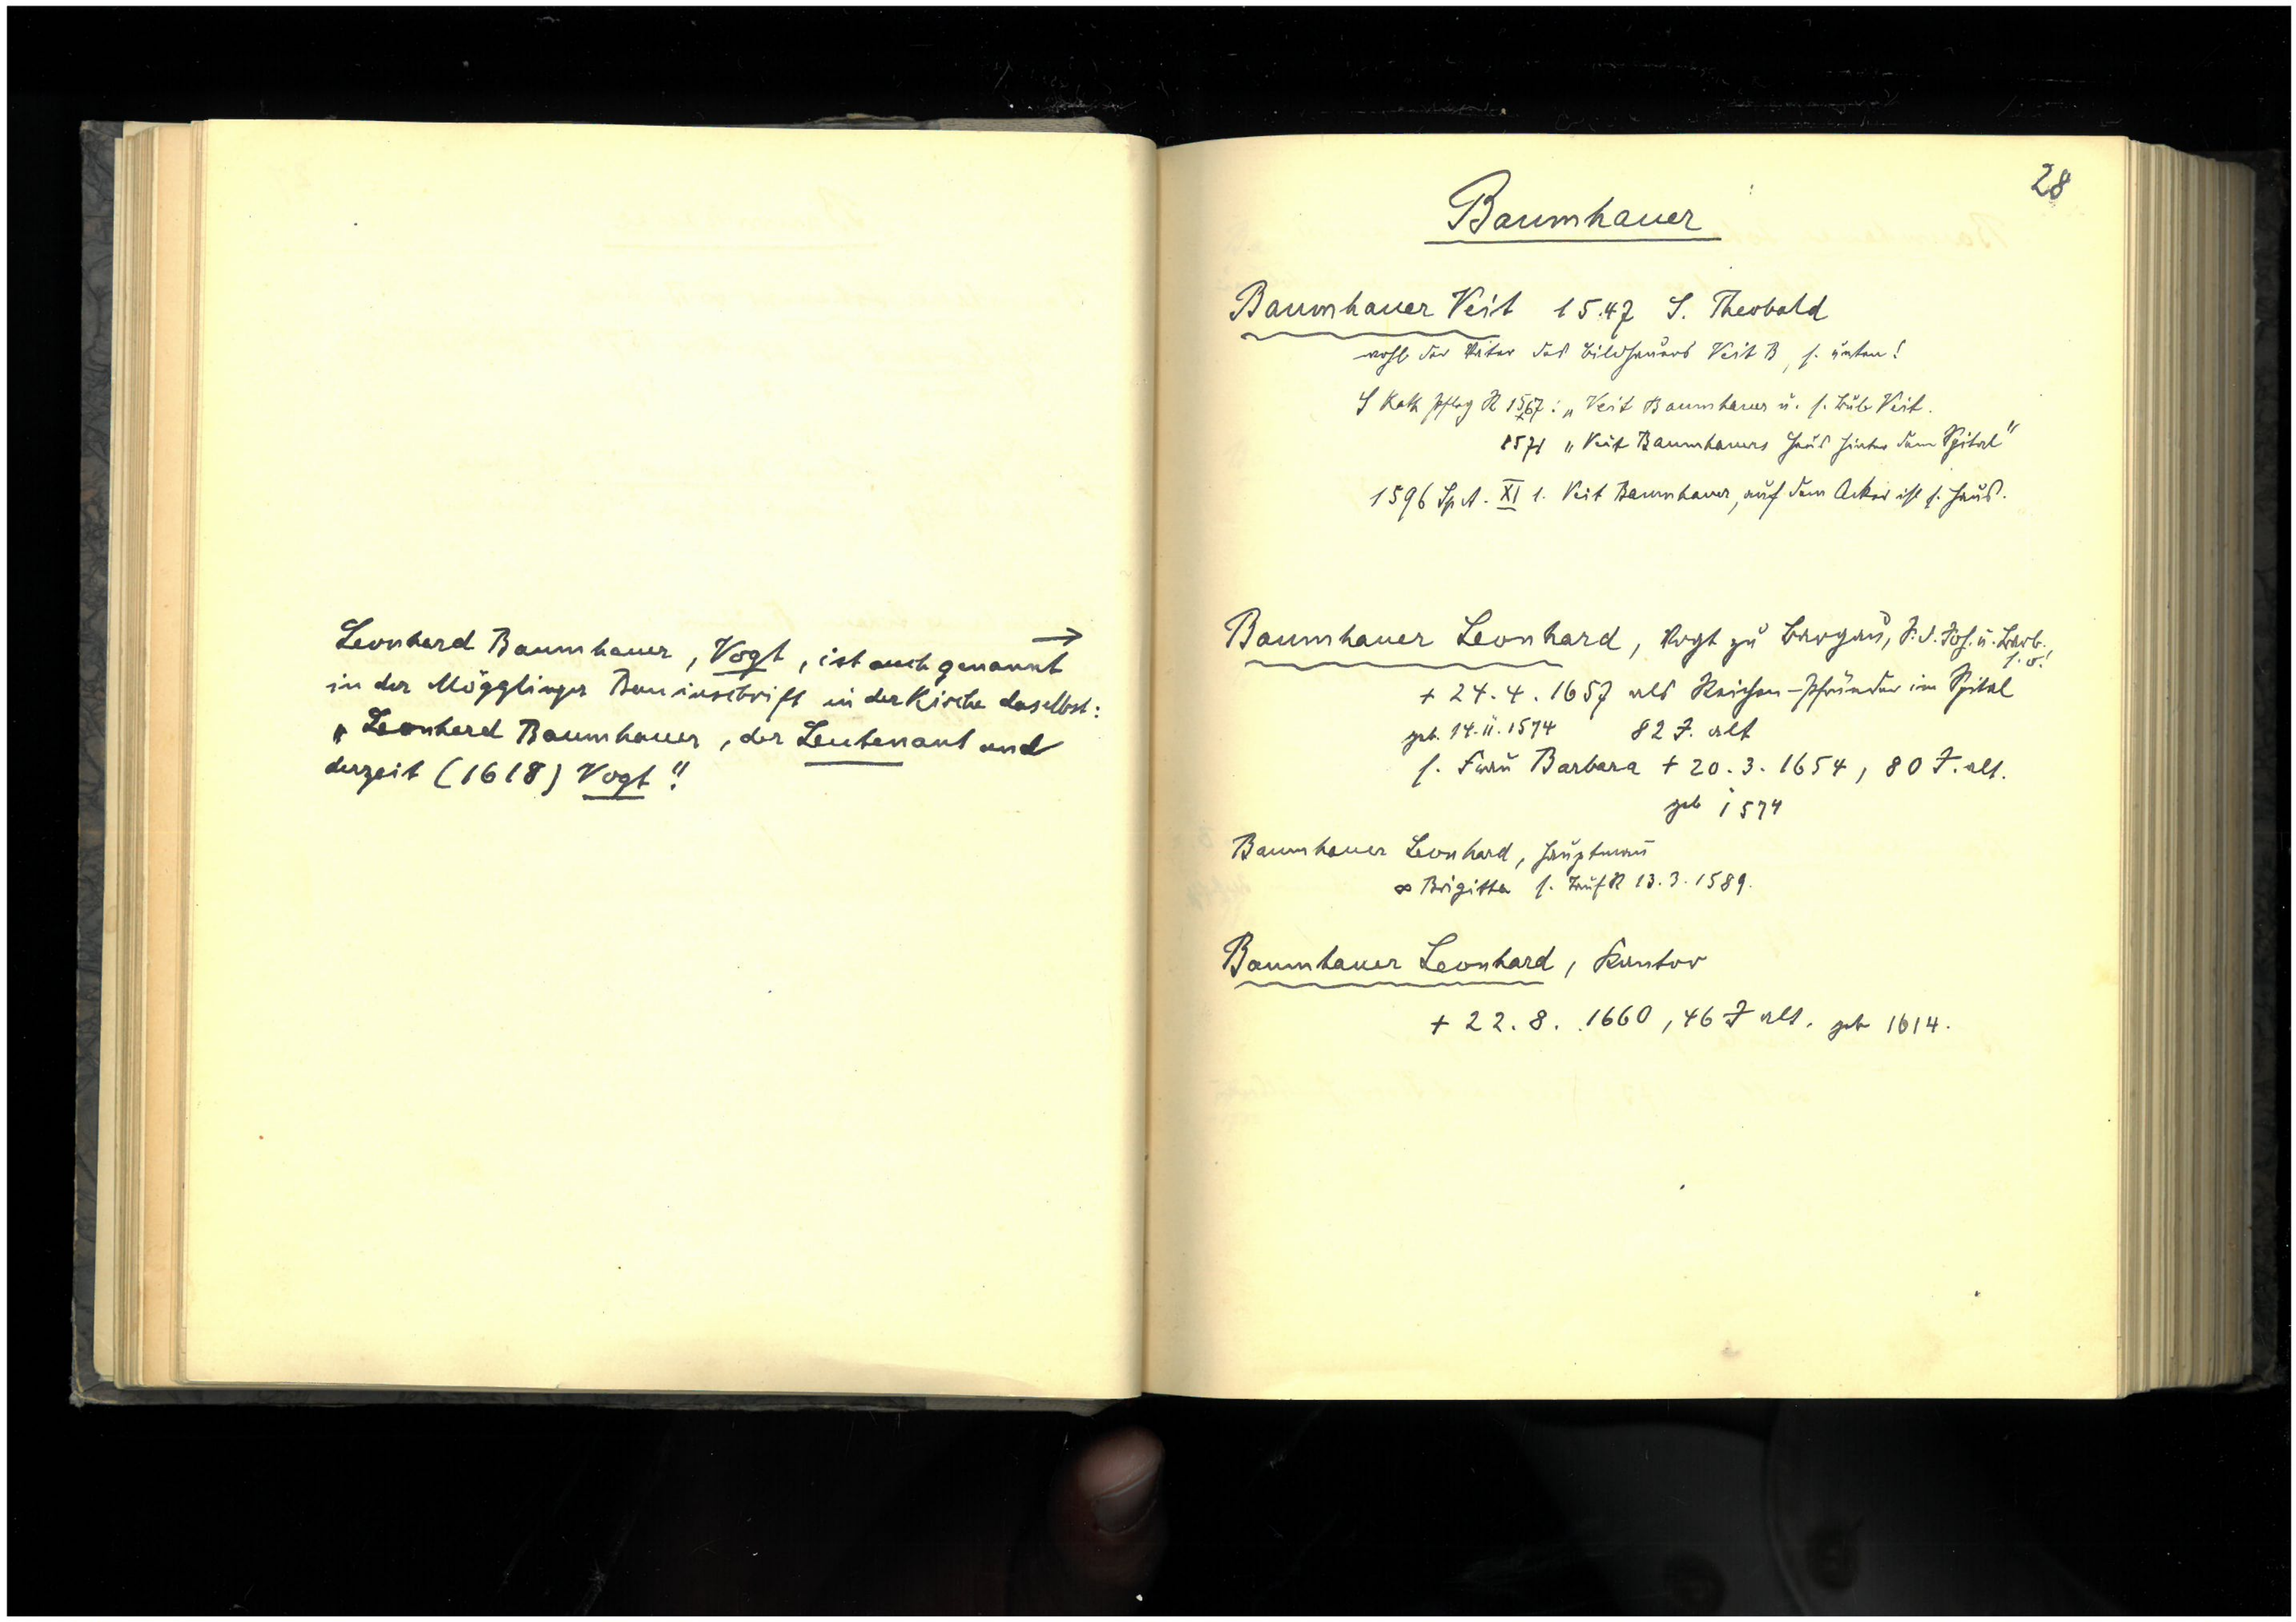 Leonhard Baumhauer, Vogt, ist auch genannt →
in der Mögglinger Bauinschrift in der Kirche daselbst:
„Leonhard Baumhauer, der Leutenant und
derzeit (1618) Vogt"!
28
Baumhauer
Baumhauer Veit 1547 S. Theobald
wohl der Vater des Bildhauers Veit B, s. unten!
S Kath Pfleg R 1567: „Veit Baumhauer u. s. Bub Veit.
1571 „Veit Baumhauers Haus hinter dem Spital"
1596 Sp A. XI 1. Veit Baumhauer, auf dem Acker ist s. Haus.
Baumhauer Leonhard, Vogt zu Bargau, S. d. Joh. u. Barb.,
s. o.!
+ 24.4.1657 als Reichen-Pfründer im Spital
geb. 14.11.1574 82 J. alt
s. Frau Barbara + 20.3.1654, 80 J. alt.
geb 1574
Baumhauer Leonhard, Hauptmann
∞ Brigitta s. Tauf R 13.3.1589.
Baumhauer Leonhard, Kantor
+ 22.8.1660, 46 J alt. geb 1614.